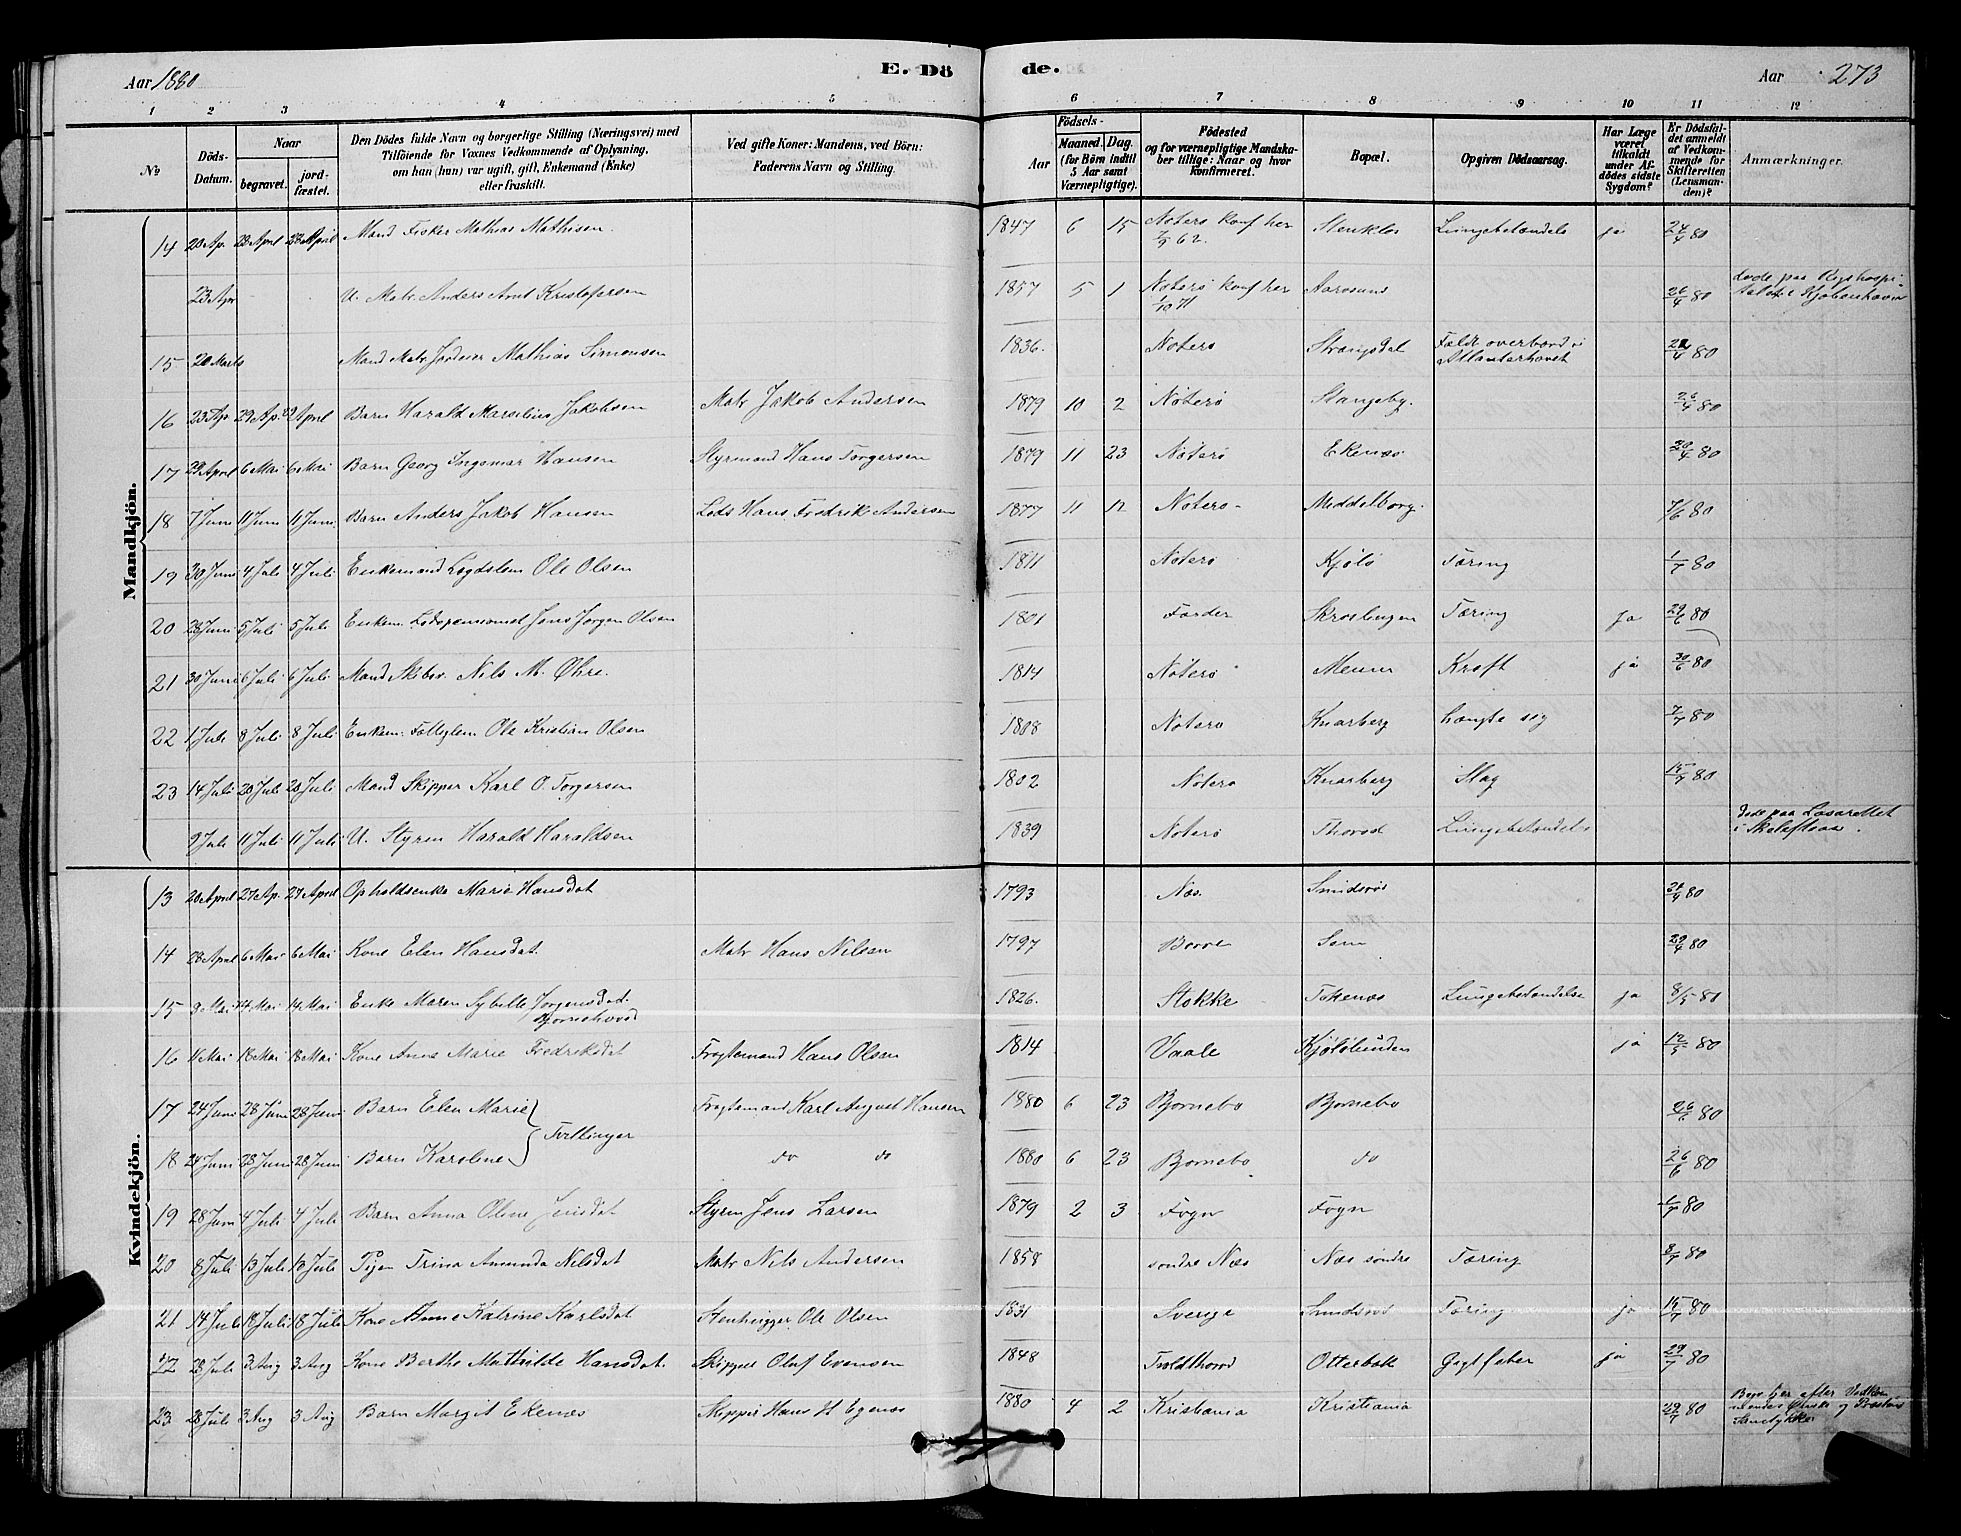 Aar 1880
E. Dö
de.
Aar
273
1 2 3 4 5 6 7 8 9 10 11 12
No
Döds-Datum.
Naar
begravet.
jordfæstet.
Den Dödes fulde Navn og borgerlige Stilling (Næringsvei) med
Tilföiende for Voxnes Vedkommende af Oplysning,
om han (hun) var ugift, gift, Enkemand (Enke)
eller fraskilt.
Ved gifte Koner: Mandens, ved Börn:
Faderens Navn og Stilling.
Födsels-
Aar
Maaned. Dag.
(for Börn indtil
5 Aar samt
Værnepligtige).
Födested
og for værnepligtige Mandska-
ber tillige: Naar og hvor
konfirmeret.
Bopæl.
Opgiven Dödsaarsag.
Har Læge
været
tilkaldt
under Af-
dödes sidste
Sygdom?
Er Dödsfal-
det anmeldt
af Vedkom-
mende for
Skifteretten
(Lensman-
den)?
Anmærkninger.
Mandkjön.
14 20 Ap. 28 April 28 April Mand Fisker Mathias Mathisen. 1847 6 15 Nøterø konf her 62. Stenklos Lungebetændels ja 24/4 80
23 Apr U. Matr. Anders Arnt Kristofersen 1857 5 1 Nøterø konf her 1/10 71 Aarøsund 26/4 80 døde paa Rigshospitalet i Kjøbenhavn
15 20 Marts Mand Matr. Mathias Simonsen 1836. Nøterø Strængsdal Faldt overbord i Atlanterhavet 80
16 23 Ap 29 Ap. 29 April Barn Harald Marselius Jakobsen Matr Jakob Andersen 1879 10 2 Nøterø Stangeby. 26/4 80
17 29 April 6 Mai 6 Mai Barn Georg Ingomar Hansen Styrmand Hans Torgersen 1879 11 23 Nøterø Ekenæs 30/4 80
18 7 Juni 11 Juni 11 Juni. Barn Anders Jakob Hansen Lods Hans Fredrik Andersen 1877 11 12 Nøterø Middelborg. 7/6 80
19 30 Juni 4 Juli 4 Juli Enkemand Lægdslem Ole Olsen 1811 Nøterø Kjølø Tæring 1/7 80
20 28 Juni 5 Juli 5 Juli Enkem. Lodspensionist Jens Jørgen Olsen 1801 Færder Skrosbugen Tæring Ja 29/6 80
21 30 Juni 6 Juli 6 Juli Mand Skibsr. Nils M. Øhre. 1814 Nøterø Meum Kræft ja 30/6 80
22 1 Juli 8 Juli 8 Juli Enkem. Fattiglem Ole Kristian Olsen 1808 Nøterø Knarberg hængte sig 7/7 80
23 14 Juli 20 Juli 20 Juli Mand Skipper Karl O. Torgersen 1802 Nøterø Knarberg Slag 15/7 80
9 Juli 11 Juli 11 Juli U. Styrm Harald Haraldsen 1839 Nøterø Thorød Lungebetændels døde paa Lasarettet i Skelefteaa.
Kvindekjön.
13 20 April 27 Ap. 27 April Opholdsenke Marie Hansdat 1793 Næs. Smidsrød 80
14 28 April 6 Mai 6 Mai Kone Elen Hansdat. Matr Hans Nilsen 1797 Borre Sem 29/4 80
15 8 Mai 14 Mai 14 Mai Enke Maren Sybille Jørgensdat. 1826. Stokke Tokenæs Lungebetændelse ja 8/5 80
16 11 Mai 18 Mai 18 Mai Kone Anne Marie Fredriksdat Fragtemand Hans Olsen 1814 Vaale Kjøløsunden ja 12/5 80
17 24 Juni 28 Juni 28 Juni Barn Elen Marie Fragtemand Karl August Hansen 1880 6 23 Bjørnebo Bjørnebo 26/6 80
Tvillinger
18 24 Juni 28 Juni 28 Juni Barn Karoline do do 1880 6 23 Bjørnebo do 26/6 80
19 28 Juni 4 Juli 4 Juli Barn Anna Oline Jensdat Styrm Jens Larsen 1879 2 3 Føgn Føgn 1/7 80
20 8 Juli 13 Juli 13 Juli Pige Trina Amunda Nilsdat Matr Nils Andersen 1858 søndre Næs Næs søndre Tæring 8/7 80
21 14 Juli 18 Juli 18 Juli Kone Anne Katrine Karlsdat Stenhugger Ole Olsen 1831 Sverige Smidsrød Tæring ja 15/7 80
22 28 Juli 3 Aug 3 Aug Kone Berthe Mathilde Hansdat. Skipper Oluf Evensen 1848 Tveldthorød Otterbæk Gigtfeber ja 29/7 80
23 28 Juli 3 Aug 3 Aug Barn Margit Ekenæs Skipper Hans H Egenæs 1880 4 2 Kristiania Kristiania 29/7 80 efter Vedkommendes Ønske og Prestens Samtykke